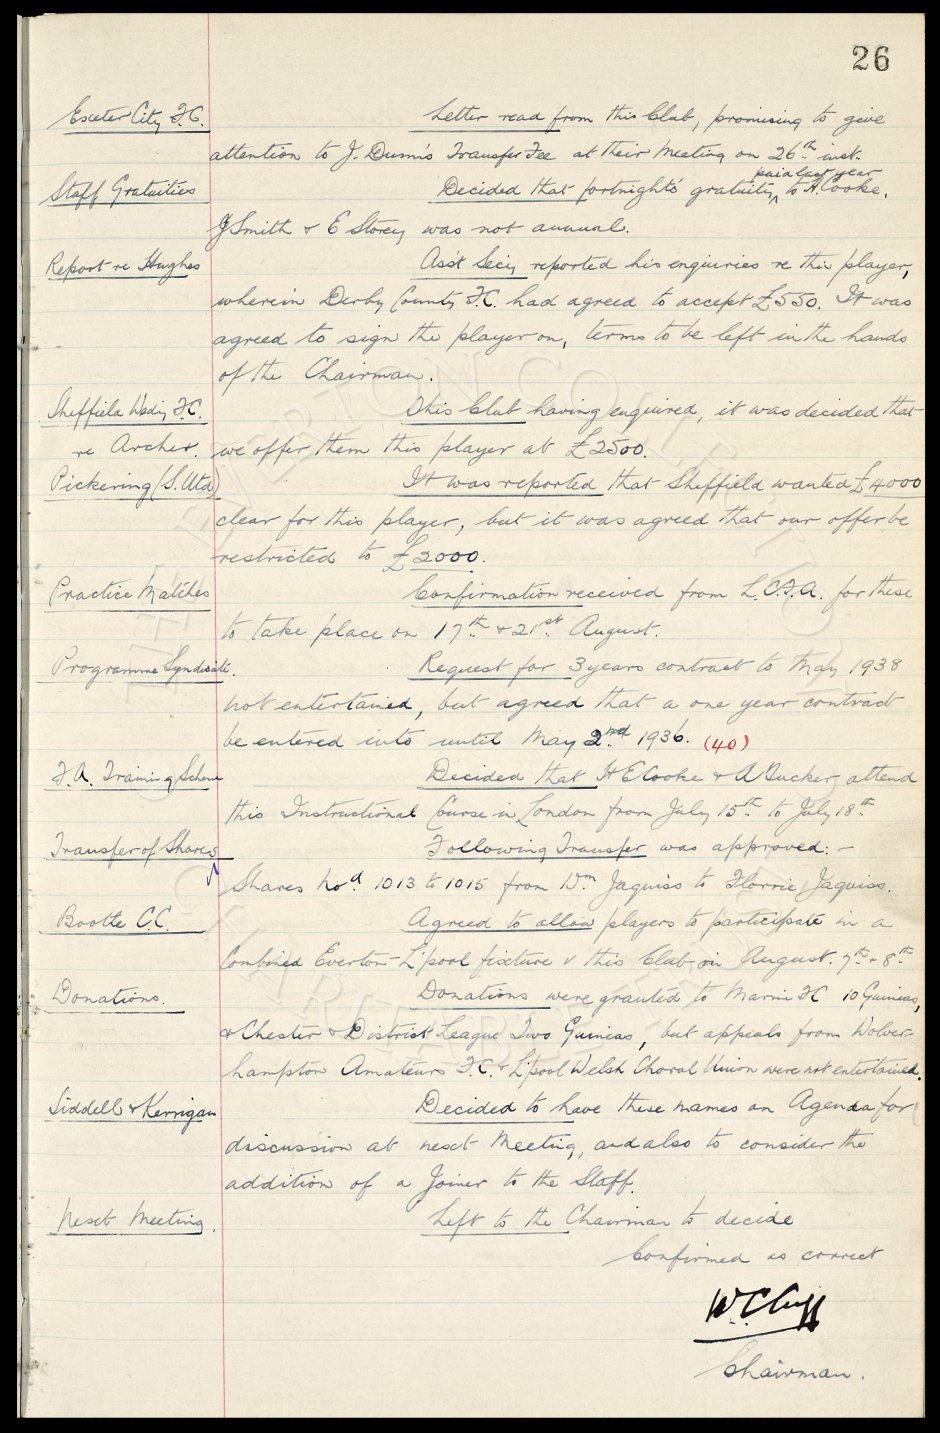 26
Exeter City F.C. Letter read from this Club, promising to give
attention to J. Dunn's Transfer Fee at their Meeting on 26th inst.
paid last year
Staff Gratuities Decided that fortnight's gratuity ^ to H. Cooke,
J Smith & E Storey was not annual.
Report re Hughes Ass't Secy reported his enquiries re this player,
wherein Derby County F.C. had agreed to accept £550. It was
agreed to sign the player on, terms to be left in the hands
of the Chairman.
Sheffield Wedy F.C. This Club having enquired, it was decided that
re Archer. we offer them this player at £2500.
Pickering (S. Utd) It was reported that Sheffield wanted £4000
clear for this player, but it was agreed that our offer be
restricted to £2000.
Practice Matches Confirmation received from L.C.F.A. for these
to take place on 17th & 21st August.
Programme Syndicate. Request for 3 years contract to May 1938
not entertained, but agreed that a one year contract
be entered into until May 2nd 1936. (40)
F.A. Training Scheme Decided that H E Cooke & A Tucker attend
this Instructional Course in London from July 15th to July 18th
Transfer of Shares Following Transfer was approved: -
Shares Nod 1013 to 1015 from Wm Jaquiss to Florrie Jaquiss.
Bootle C.C. Agreed to allow players to participate in a
Combined Everton - L'pool fixture v this Club on August. 7th & 8th
Donations. Donations were granted to Marine FC 10 Guineas,
& Chester & District League Two Guineas, but appeals from Wolver-
hampton Amateurs F.C. & L'pool Welsh Choral Union were not entertained.
Liddell & Kerrigan Decided to have these names on Agenda for
discussion at next Meeting, and also to consider the
addition of a Joiner to the Staff.
Next Meeting. Left to the Chairman to decide
Confirmed as correct
W.C. Cuff
Chairman.